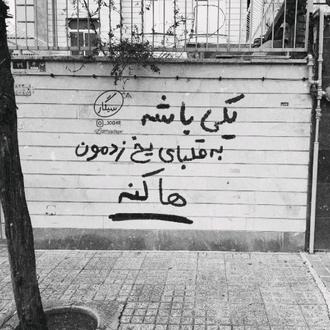 یکی باشه
به قلبای یخ زدمون
ها کنه
سیگار